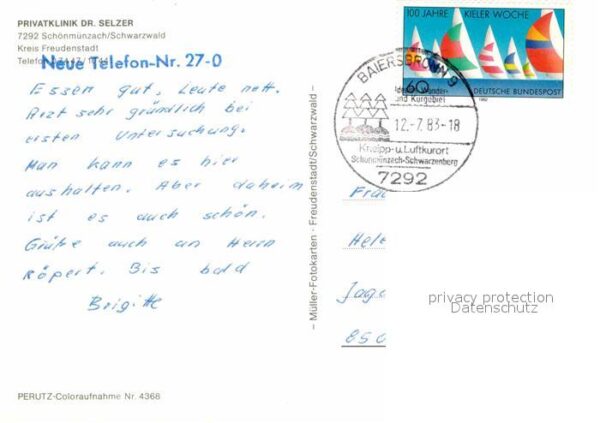 PRIVATKLINIK DR. SELZER
7292 Schönmünzach/Schwarzwald
Kreis Freudenstadt
Neue Telefon-Nr. 27-0
Essen gut, Leute nett.
Arzt sehr gründlich bei
ersten Untersuchung.
Man kann es hier
aushalten. Aber daheim
ist es auch schön.
Grüße auch an Herrn
Röpert. Bis bald
Brigitte
PERUTZ-Coloraufnahme Nr. 4368
– Müller-Fotokarten · Freudenstadt/Schwarzwald –
100 JAHRE KIELER WOCHE
60
DEUTSCHE BUNDESPOST
1982
BAIERSBRONN 9
Wander-
und Kurgebiet
12.-7.83-18
Kneipp-u.Luftkurort
Schönmünzach-Schwarzenberg
7292
Frau
Hele
Jago
850
privacy protection
Datenschutz